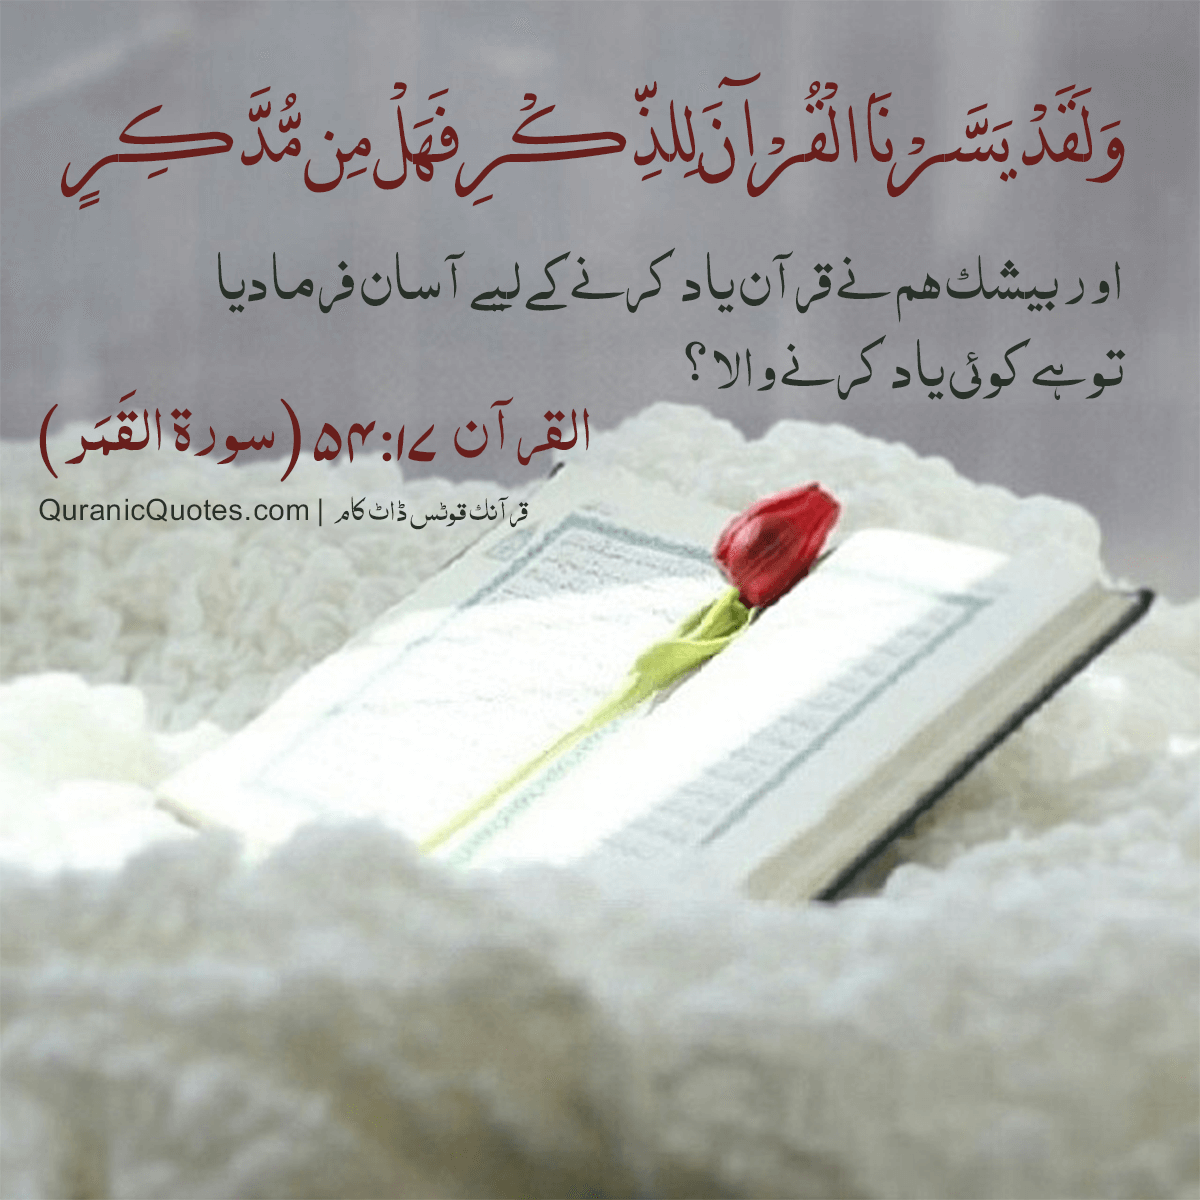 وَلَقَدْ يَسَّرْنَا الْقُرْآنَ لِلذِّكْرِ فَهَلْ مِن مُّدَّكِرٍ
اور بیشک ہم نے قرآن یاد کرنے کے لیے آسان فرما دیا
تو ہے کوئی یاد کرنے والا؟
القرآن ۵۴:۱۷ (سورة القَمَر)
QuranicQuotes.com | قرآنک قوٹس ڈاٹ کام